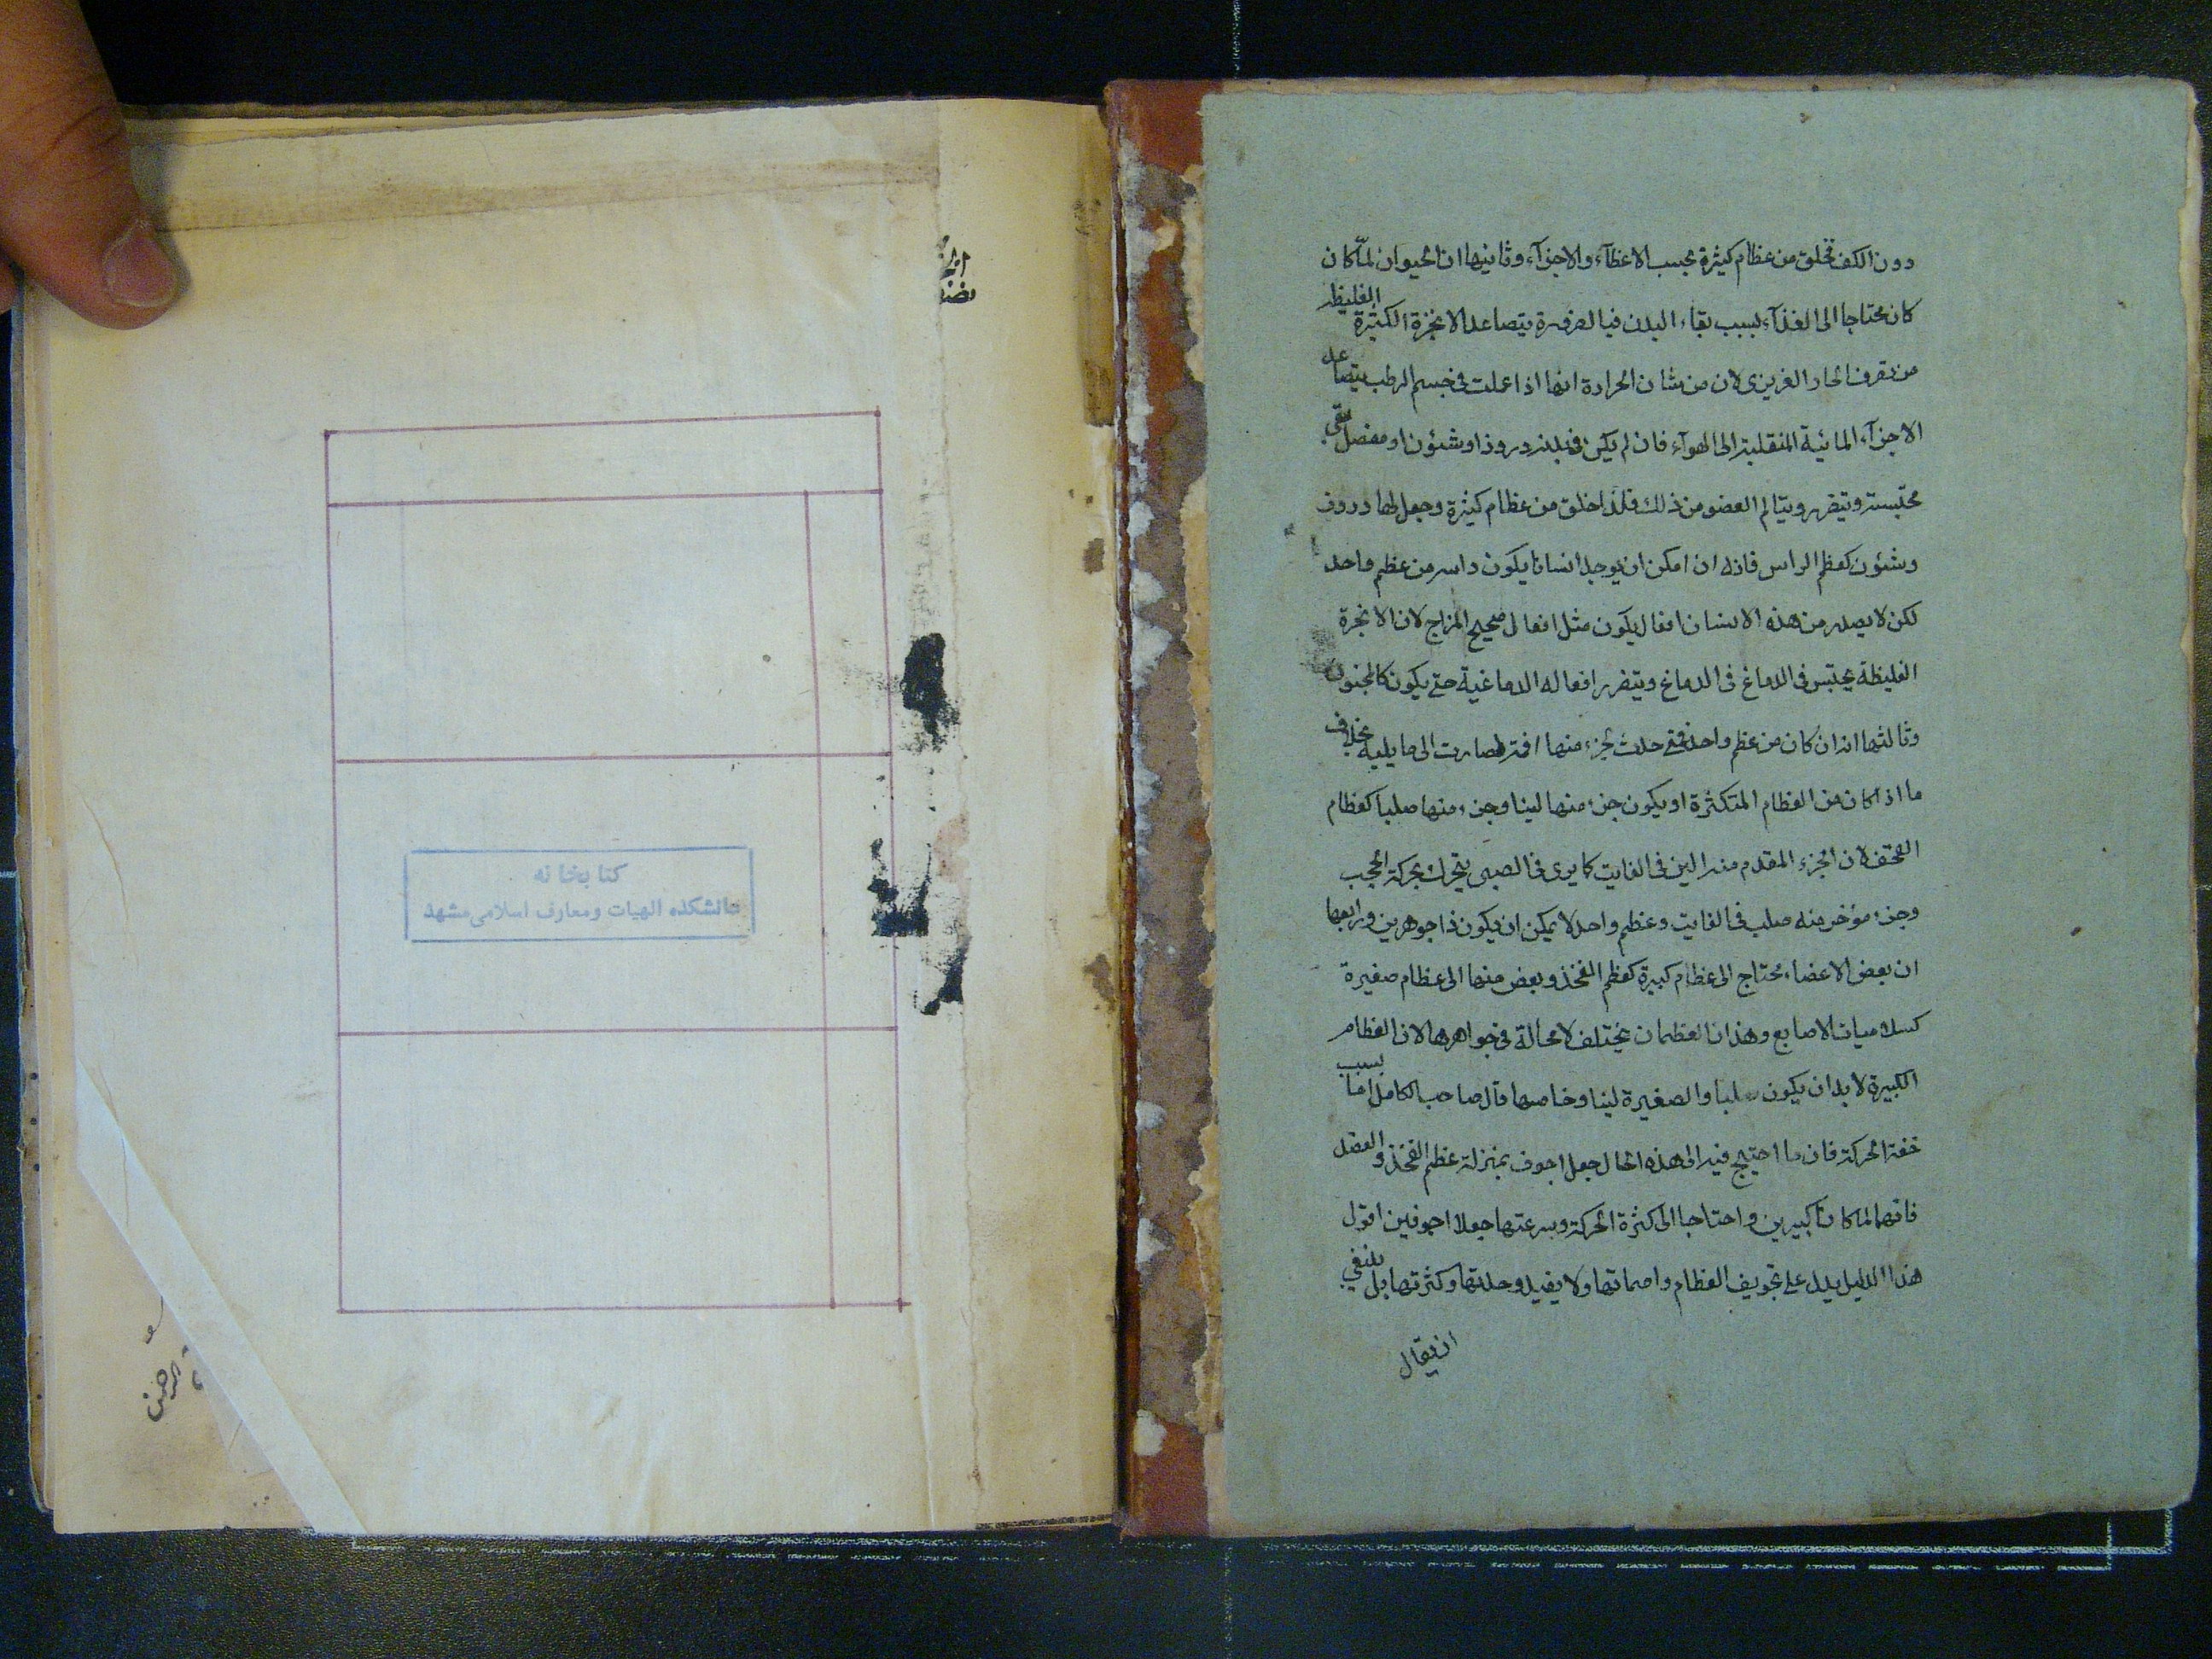 دون الكف فخلق من عظام كثيرة بحسب الاعظآء والاجزآء وثانيها ان الحيوان لمّا كان
كان محتاجا الى الغذآء بسبب بقاء البدن فبالضرورة يتصاعد الابخرة الكثيرة الغليظه
من تصرف الحار الغريزى لان من شان الحرارة انها اذا عملت فى جسم الرطب يتصاعد
الاجزآء المائية المنقلبة الى الهوآء فان لم يكن فى بدنه دروز او شئون او مفصل بقى
محتبسة ويتضرر ويتالم العضو من ذلك فلذا خلق من عظام كثيرة وجعل لها دروز
وشئون كعظم الراس فانه ان امكن ان يوجد انسانا يكون راسه من عظم واحد
لكن لا يصدر من هذه الانسان افعال يكون مثل افعال صحيح المزاج لان الابخرة
الغليظة يحتبس فى الدماغ فى الدماغ ويتضرر افعاله الدماغية حتى يكون كالمجنون
وثالثها انه ان كان من عظم واحد فمتى حدث لجزء منها افة لصارت الى ما يليه بخلاف
ما اذا كان من العظام المتكثرة او يكون جزء منها لينا وجزء منها صلبا كعظام
القحف لان الجزء المقدم منه الين فى الغايت كما يرى فى الصبى يتحرك بحركة الحجب
وجزء مؤخر منه صلب فى الغايت وعظم واحد لا يمكن ان يكون ذا جوهرين ورابعها
ان بعض الاعضاء محتاج الى عظام كبيرة كعظم الفخذ وبعض منها الى عظام صغيرة
كسلاميات الاصابع وهذان العظمان يختلف لا محالة فى جواهرها لان العظام
الكبيرة لا بد ان يكون صلبا والصغيرة لينا وخامسها قال صاحب الكامل اما بسبب
خفة الحركة فان ما احتيج فيه الى هذه الحال جعل اجوف بمنزلة عظم الفخذ والعضد
فانهما لما كانا كبيرين واحتاجا الى كثرة الحركة وسرعتها جعلا اجوفين اقول
هذا الدليل يدل على تجويف العظام واصماتها ولا يفيد وحدتها وكثرتها بل ينبغي
ان يقال
كتابخانه
دانشكده الهيات ومعارف اسلامى مشهد
الرحمن